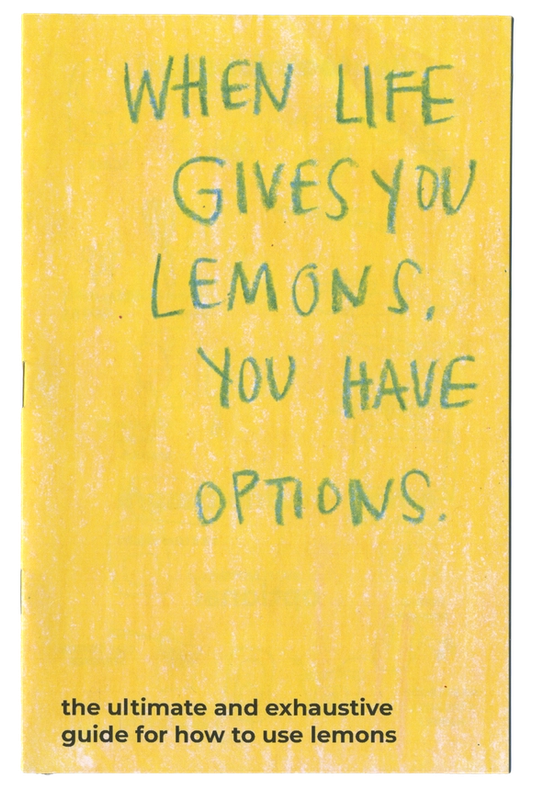 WHEN LIFE
GIVES YOU
LEMONS,
YOU HAVE
OPTIONS.
the ultimate and exhaustive
guide for how to use lemons